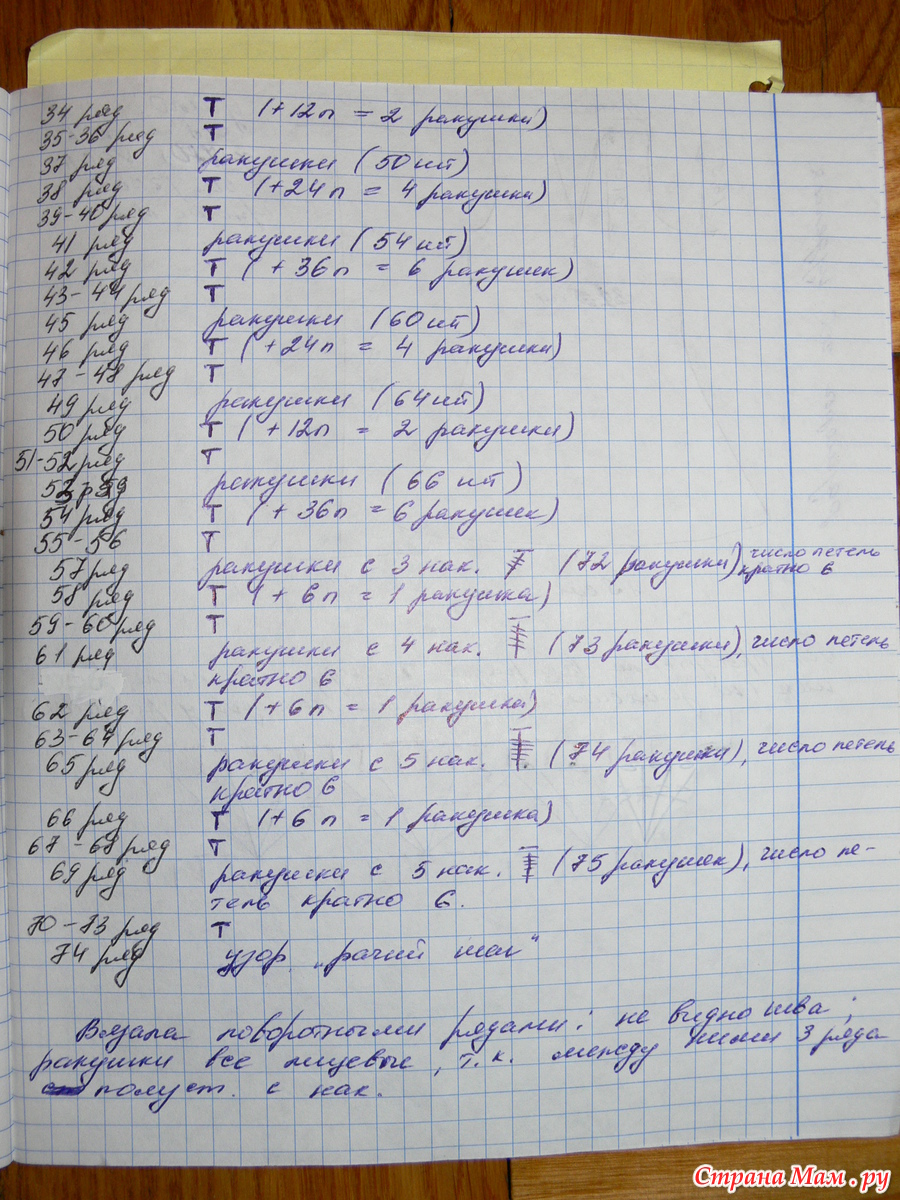 34 ряд Т (+12п = 2 ракушки)
35-36 ряд Т
37 ряд ракушки (50 шт)
38 ряд Т (+24п = 4 ракушки)
39-40 ряд Т
41 ряд ракушки (54 шт)
42 ряд Т (+36п = 6 ракушек)
43-44 ряд Т
45 ряд ракушки (60 шт)
46 ряд Т (+24п = 4 ракушки)
47-48 ряд Т
49 ряд ракушки (64 шт)
50 ряд Т (+12п = 2 ракушки)
51-52 ряд Т
53 ряд ракушки (66 шт)
54 ряд Т (+36п = 6 ракушек)
55-56 Т
57 ряд ракушки с 3 нак. (72 ракушки) число петель
кратно 6
58 ряд Т (+6п = 1 ракушка)
59-60 ряд Т
61 ряд ракушки с 4 нак. (73 ракушки), число петель
кратно 6
62 ряд Т (+6п = 1 ракушка)
63-64 ряд Т
65 ряд ракушки с 5 нак. (74 ракушки), число петель
кратно 6
66 ряд Т (+6п = 1 ракушка)
67-68 ряд Т
69 ряд ракушки с 5 нак. (75 ракушек), число пе-
тель кратно 6.
70-73 ряд Т
74 ряд узор „рачий шаг“
Вязала поворотными рядами: не видно шва;
ракушки все лицевые, т.к. между ними 3 ряда
полуст. с нак.
Страна Мам.ру